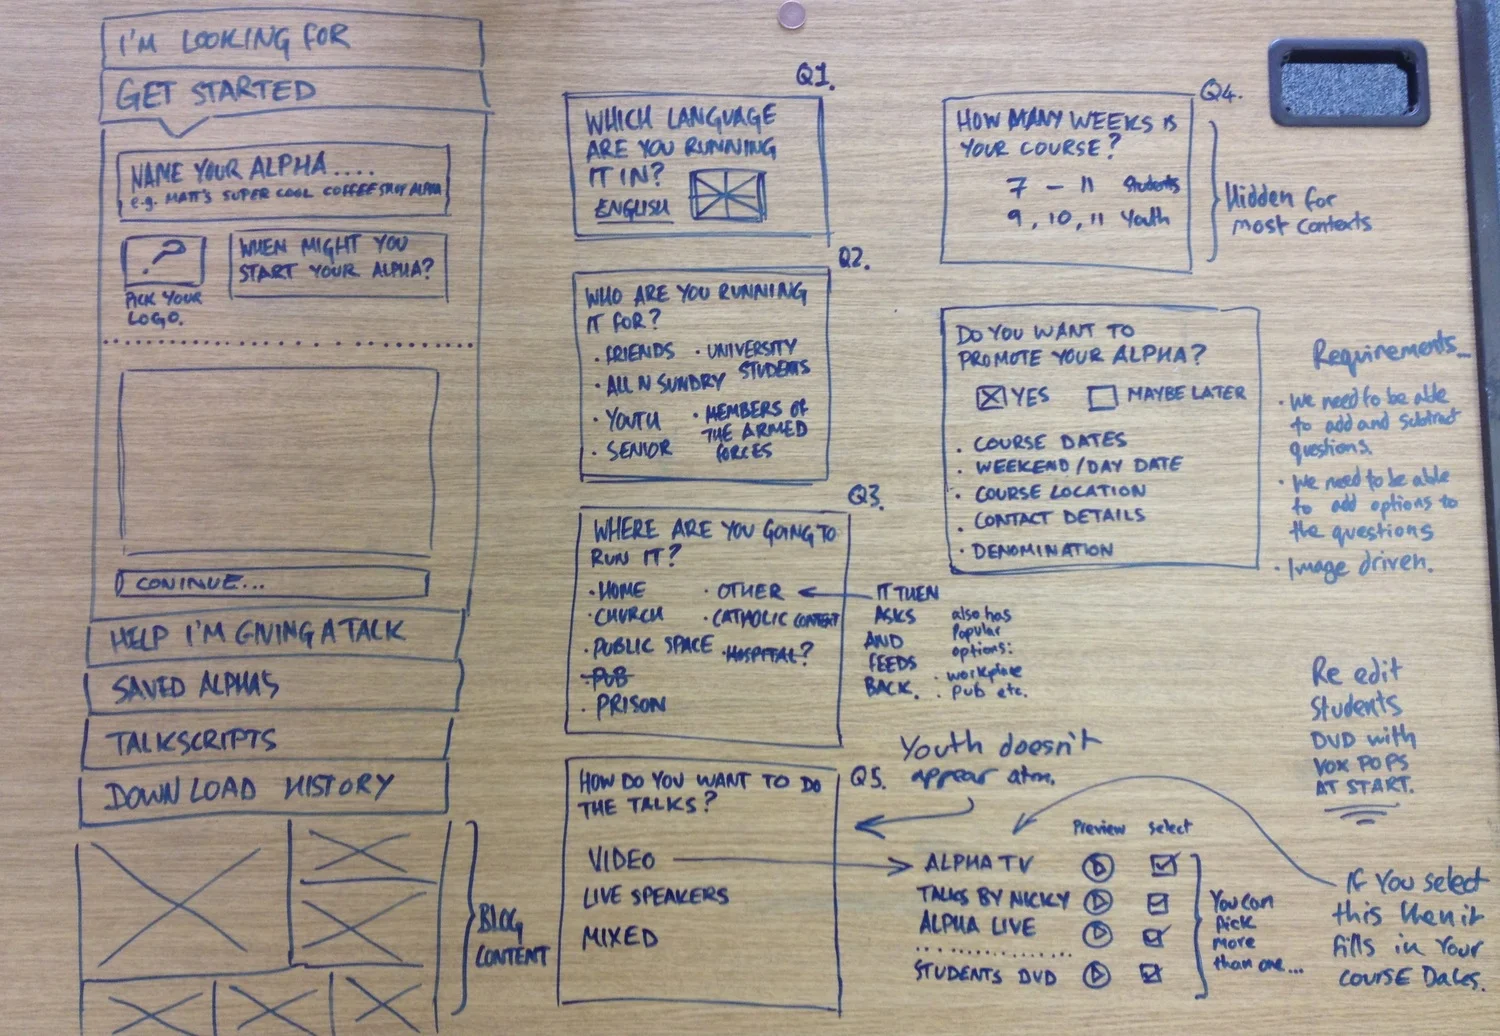 I'M LOOKING FOR
GET STARTED
NAME YOUR ALPHA....
e.g. MATT'S SUPER COOL COFFEE SHOP ALPHA
?
PICK YOUR
LOGO.
WHEN MIGHT YOU
START YOUR ALPHA?
CONINUE...
HELP I'M GIVING A TALK
SAVED ALPHAS
TALKSCRIPTS
DOWNLOAD HISTORY
BLOG
CONTENT
Q1.
WHICH LANGUAGE
ARE YOU RUNNING
IT IN?
ENGLISH
Q2.
WHO ARE YOU RUNNING
IT FOR?
· FRIENDS
· ALL N SUNDRY
· YOUTH
· SENIOR
· UNIVERSITY
STUDENTS
· MEMBERS OF
THE ARMED
FORCES
Q3
WHERE ARE YOU GOING TO
RUN IT?
· HOME
· CHURCH
· PUBLIC SPACE
· PUB
· PRISON
· OTHER
· CATHOLIC CONTEXT
· HOSPITAL?
IT THEN
ASKS
AND
FEEDS
BACK.
also has
Popular
options:
· workplace
· Pub etc.
Q5.
HOW DO YOU WANT TO DO
THE TALKS?
VIDEO
LIVE SPEAKERS
MIXED
Youth doesn't
appear atm.
Preview Select
ALPHA TV
TALKS BY NICKY
ALPHA LIVE
STUDENTS DVD
You can
pick
more
than one...
Q4.
HOW MANY WEEKS IS
YOUR COURSE?
7 - 11 Students
9, 10, 11 Youth
Hidden for
most contexts
DO YOU WANT TO
PROMOTE YOUR ALPHA?
YES MAYBE LATER
· COURSE DATES
· WEEKEND/DAY DATE
· COURSE LOCATION
· CONTACT DETAILS
· DENOMINATION
Requirements...
· We need to be able
to add and subtract
questions.
· We need to be able
to add options to
the questions
· Image driven.
Re edit
Students
DVD with
VOX POPS
AT START.
If you select
this then it
fills in your
course Dates.